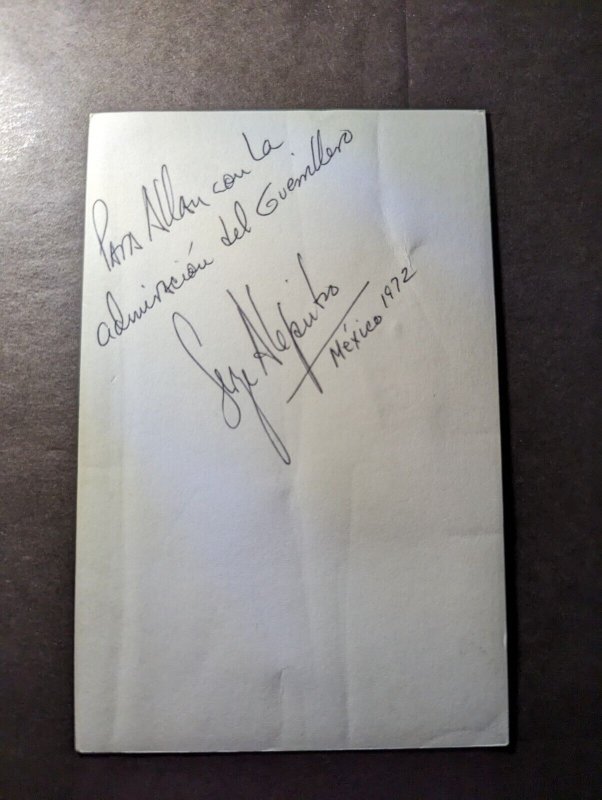 Para Allan con la
admiración del Guerrillero
México 1972